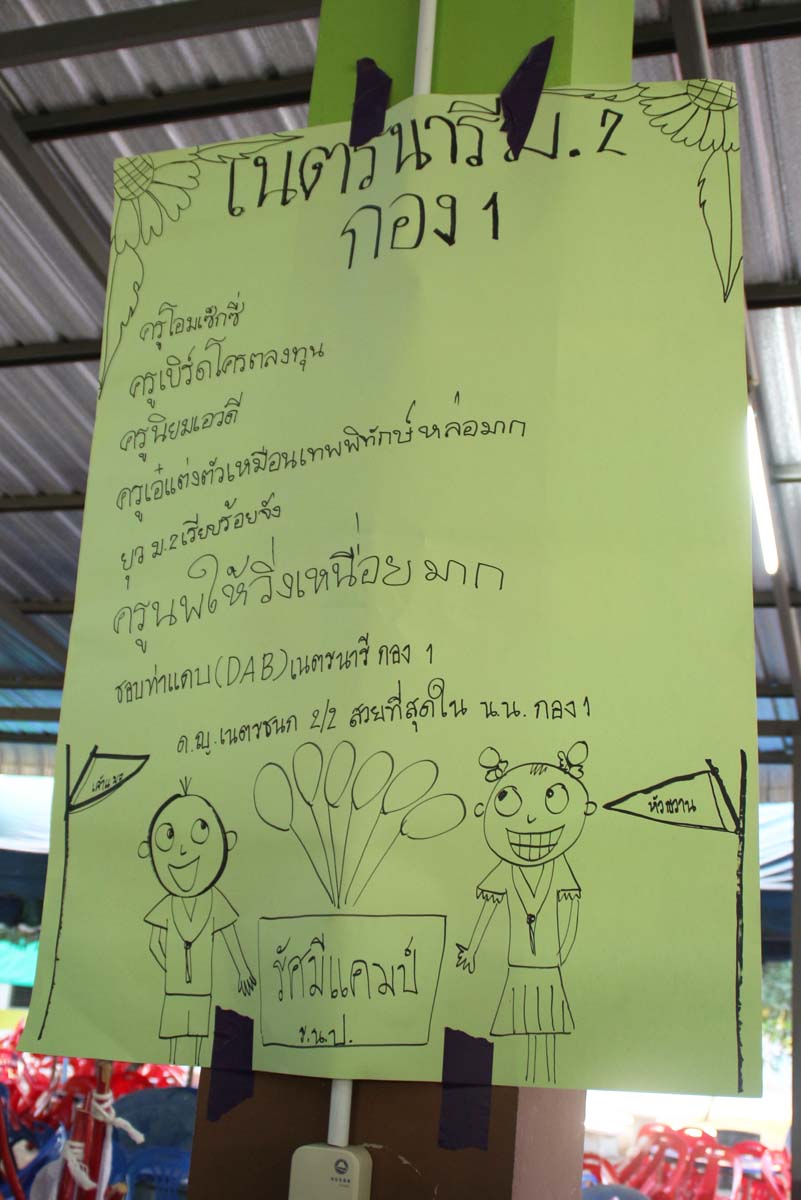 เนตรนารี ม.2
กอง 1
ครูโอมเซ็กซี่
ครูเบิร์ดโครตลงทุน
ครูนิยมเอวดี
ครูเอ๋แต่งตัวเหมือนเทพพิทักษ์หล่อมาก
ยุว ม.2เรียบร้อยจัง
ครูนพให้วิ่งเหนื่อยมาก
ชอบท่าแดบ(DAB)เนตรนารี กอง 1
ด.ญ.เนตรชนก 2/2 สวยที่สุดใน น.น. กอง1
หัวขวาน
รัศมีแคมป์
ข.น.ป.